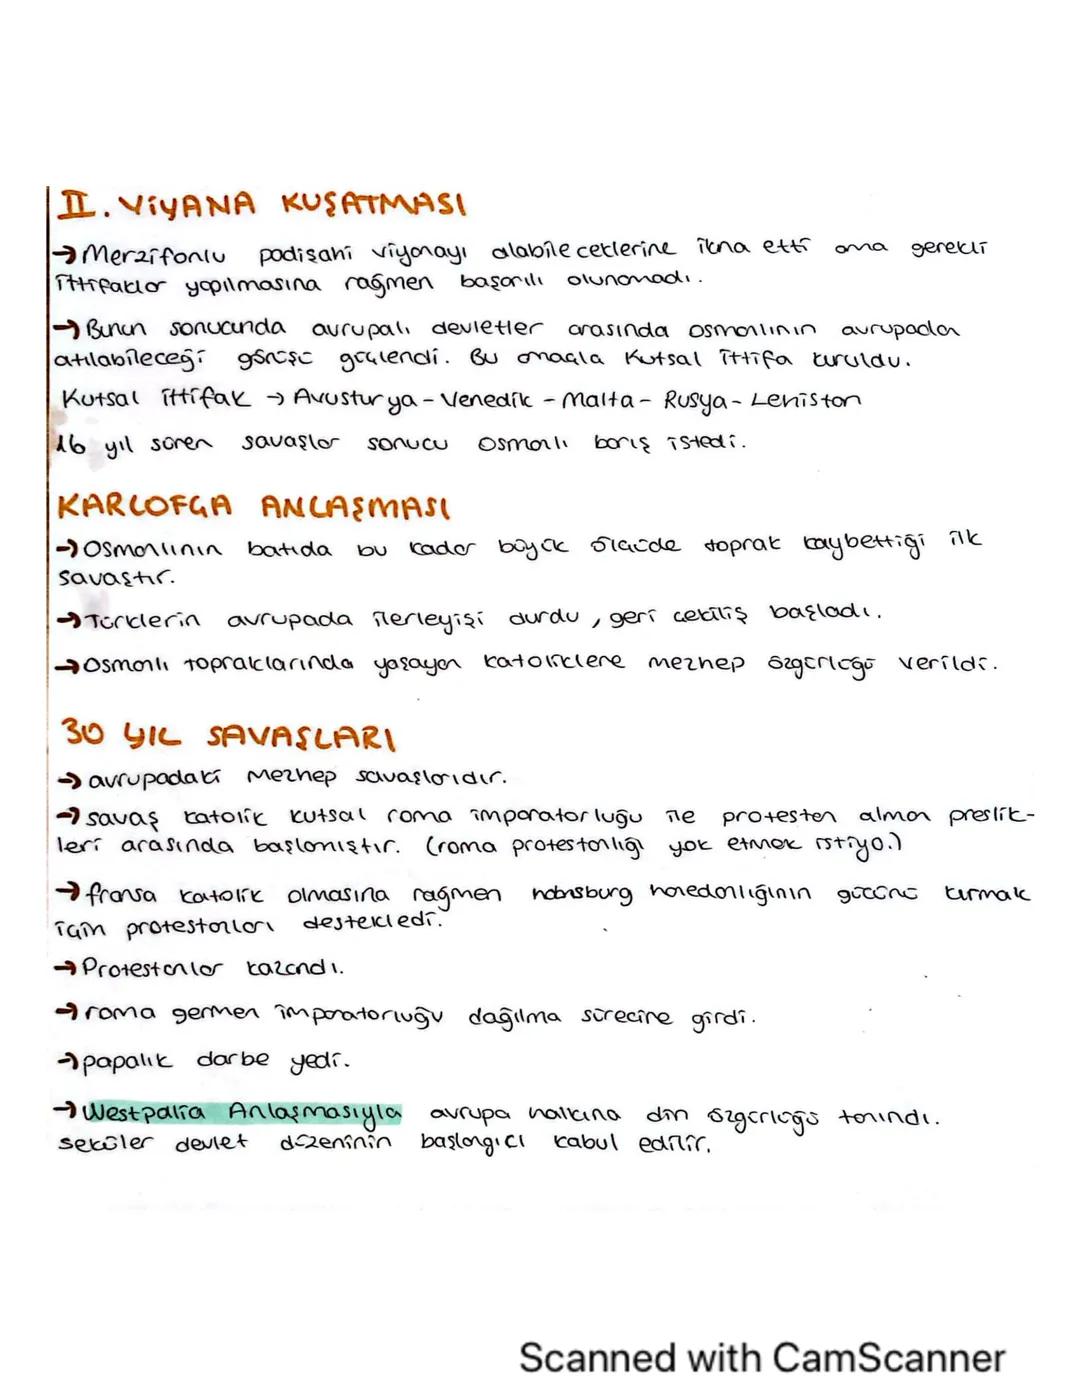 II. VİYANA KUŞATMASI
→ Merzifonlu padişahı viyanayı alabileceklerine ikna etti ama gerekli
ittifaklar yapılmasına rağmen başarılı olunamadı.
→ Bunun sonucunda avrupalı devletler arasında osmanlının avrupadan
atılabileceği görüşü güçlendi. Bu amaçla Kutsal ittifa kuruldu.
Kutsal ittifak → Avusturya - Venedik - Malta - Rusya - Lehistan
16 yıl süren savaşlar sonucu Osmanlı barış istedi.
KARLOFÇA ANLAŞMASI
→ Osmanlının batıda bu kadar büyük ölçüde toprak kaybettiği ilk
savaştır.
→ Türklerin avrupada ilerleyişi durdu, geri çekiliş başladı.
→ Osmanlı topraklarında yaşayan katoliklere mezhep özgürlüğü verildi.
30 YIL SAVAŞLARI
→ avrupadaki mezhep savaşlarıdır.
→ savaş katolik kutsal roma imparatorluğu ile protestan alman preslik-
leri arasında başlamıştır. (roma protestanlığı yok etmek istiyo.)
→ fransa katolik olmasına rağmen habsburg hanedanlığının gücünü kırmak
için protestanları destekledi.
→ Protestanlar kazandı.
→ roma germen imparatorluğu dağılma sürecine girdi.
→ papalık darbe yedi.
→ Westpalia Anlaşmasıyla avrupa halkına din özgürlüğü tanındı.
seküler devlet düzeninin başlangıcı kabul edilir.
Scanned with CamScanner